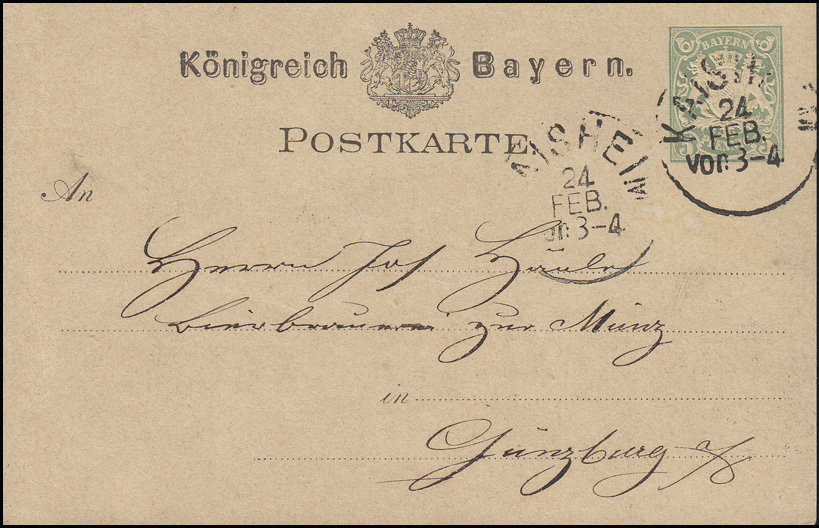 Königreich Bayern.
POSTKARTE.
BAYERN
KAISH
24
FEB.
von 3-4
AISHEIM
24
FEB.
on 3-4
An
Herrn Jos Häule
Bierbrauer zur Münz
in
Günzburg